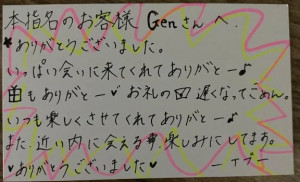 本指名のお客様 Genさんへ.
★ありがとうございました。
いっぱい会いに来てくれてありがとー♪
田もありがとー♥ お礼の田遅くなってごめん。
いつも楽しくさせてくれてありがとー♪
また、近い内に会える事、楽しみにしてます。
♥ありがとうございました♥